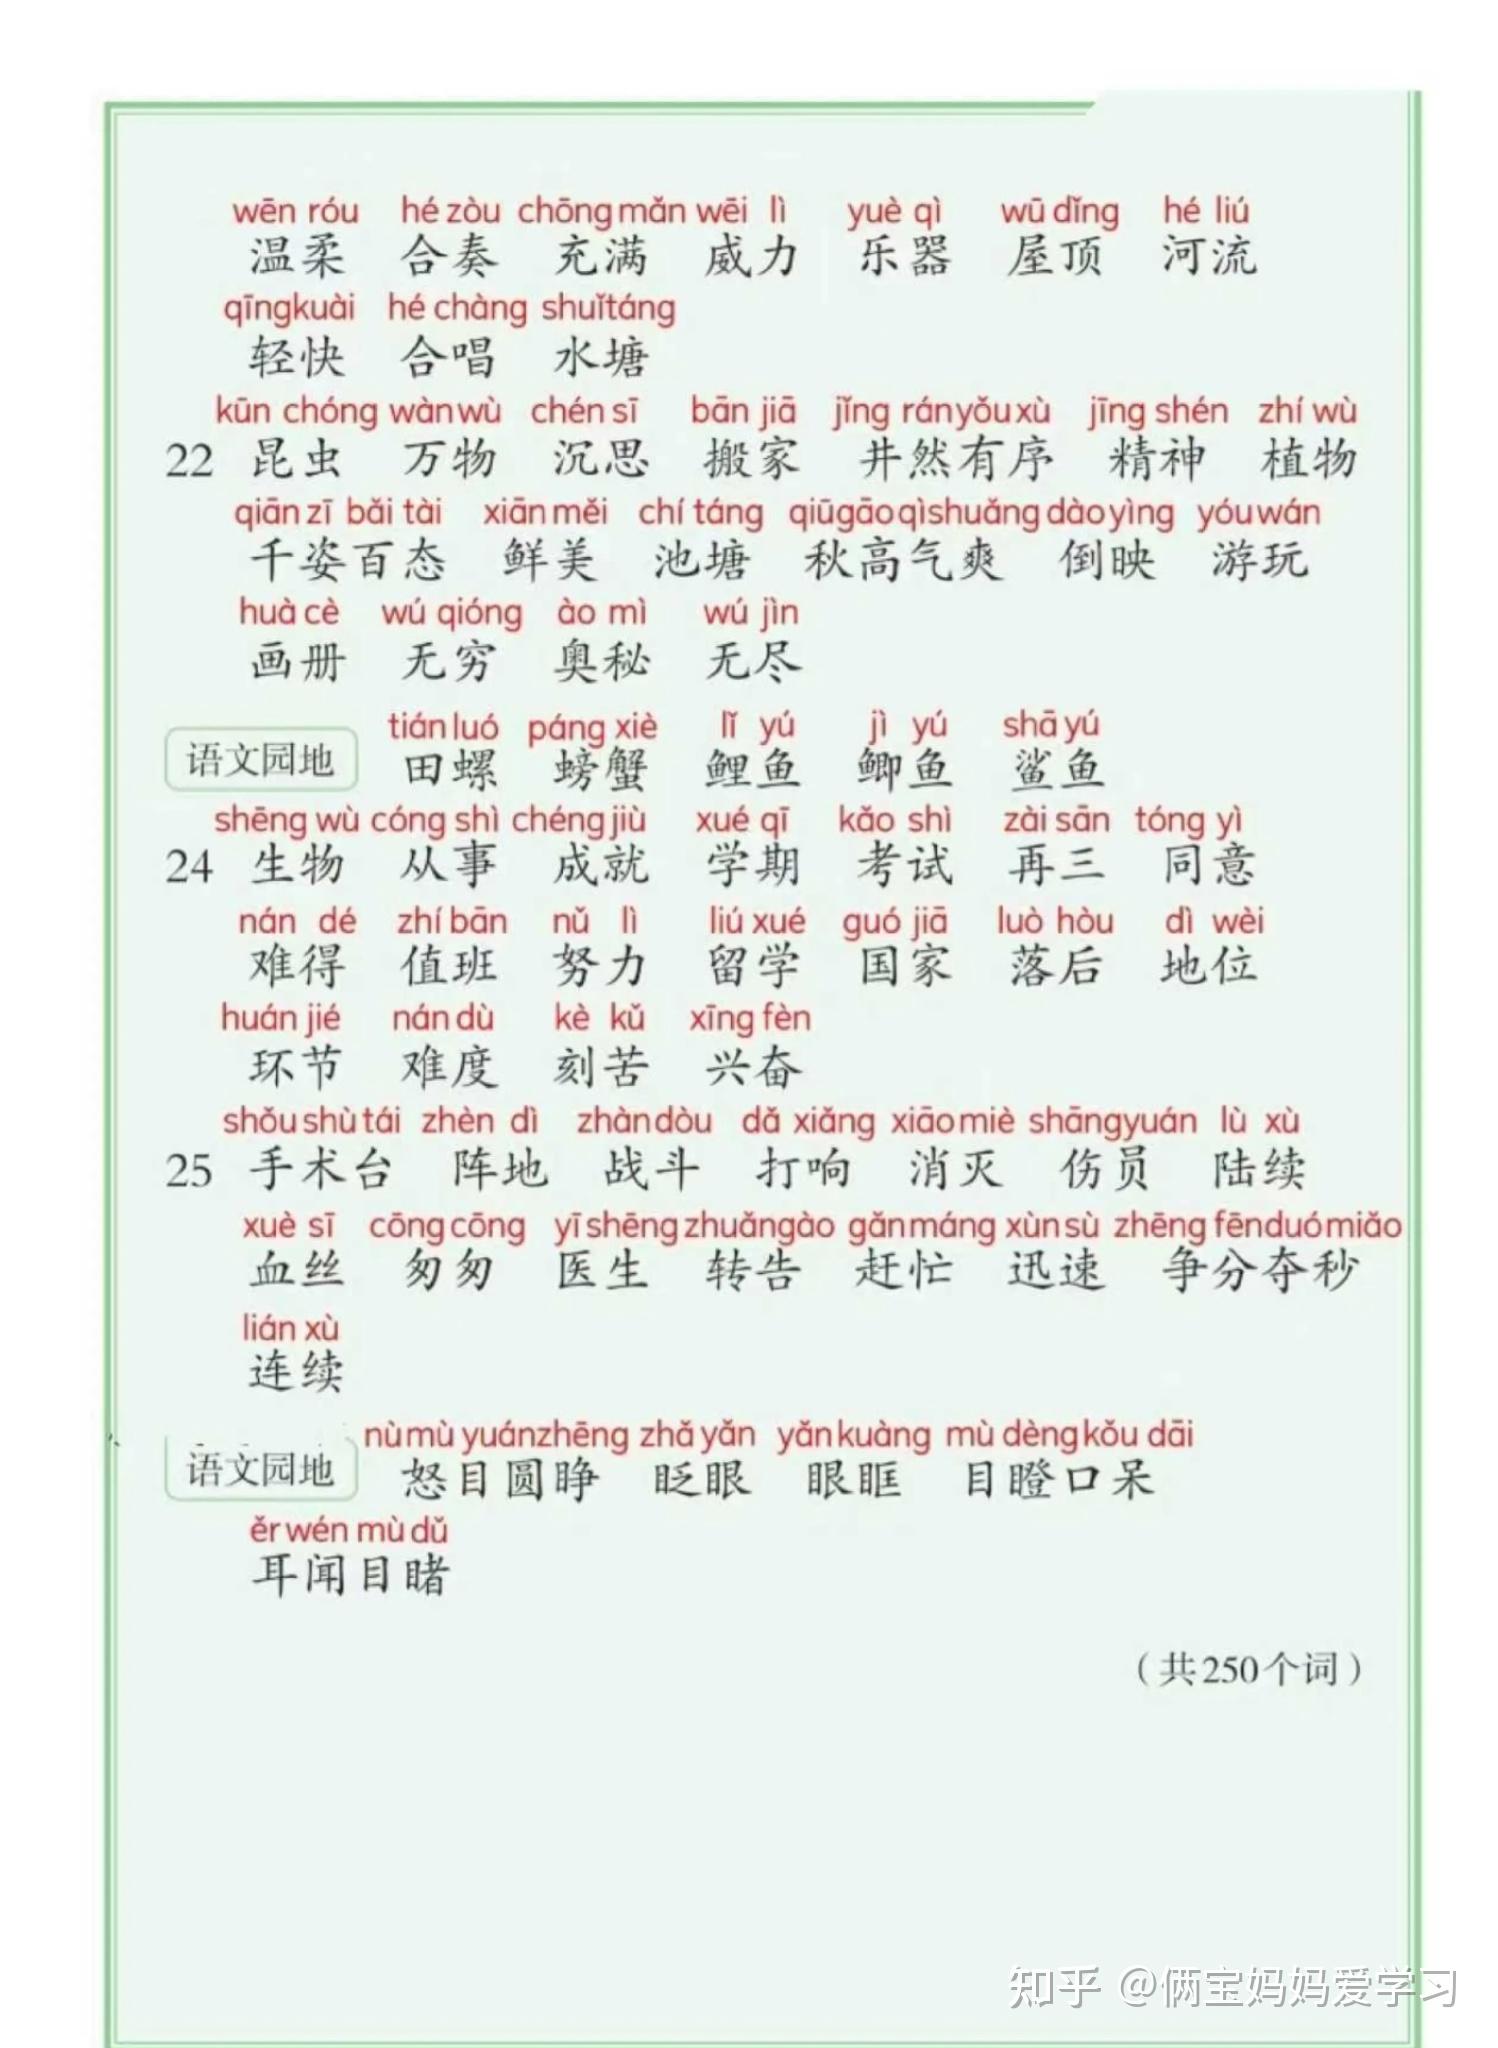 wēn róu hé zòu chōng mǎn wēi lì yuè qì wū dǐng hé liú
温柔 合奏 充满 威力 乐器 屋顶 河流
qīngkuài hé chàng shuǐtáng
轻快 合唱 水塘
kūn chóng wàn wù chén sī bān jiā jǐng rán yǒu xù jīng shén zhí wù
22 昆虫 万物 沉思 搬家 井然有序 精神 植物
qiān zī bǎi tài xiān měi chí táng qiūgāoqìshuǎng dào yìng yóu wán
千姿百态 鲜美 池塘 秋高气爽 倒映 游玩
huà cè wú qióng ào mì wú jìn
画册 无穷 奥秘 无尽
tián luó páng xiè lǐ yú jì yú shā yú
语文园地 田螺 螃蟹 鲤鱼 鲫鱼 鲨鱼
shēng wù cóng shì chéng jiù xué qī kǎo shì zài sān tóng yì
24 生物 从事 成就 学期 考试 再三 同意
nán dé zhí bān nǔ lì liú xué guó jiā luò hòu dì wèi
难得 值班 努力 留学 国家 落后 地位
huán jié nán dù kè kǔ xīng fèn
环节 难度 刻苦 兴奋
shǒu shù tái zhèn dì zhàn dòu dǎ xiǎng xiāo miè shāngyuán lù xù
25 手术台 阵地 战斗 打响 消灭 伤员 陆续
xuè sī cōng cōng yī shēng zhuǎngào gǎn máng xùn sù zhēng fēn duó miǎo
血丝 匆匆 医生 转告 赶忙 迅速 争分夺秒
lián xù
连续
nù mù yuánzhēng zhǎ yǎn yǎn kuàng mù dèng kǒu dāi
语文园地 怒目圆睁 眨眼 眼眶 目瞪口呆
ěr wén mù dǔ
耳闻目睹
（共250个词）
知乎 @俩宝妈妈爱学习